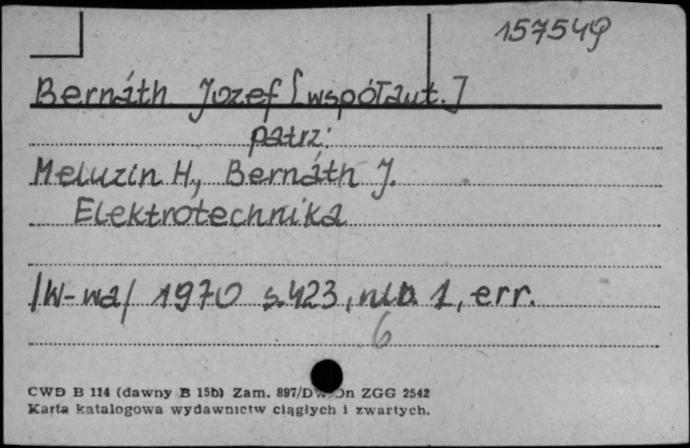 157549
Bernáth Jozef [współaut.]
patrz:
Meluzin H., Bernáth J.
Elektrotechnika
/W-wa/ 1970 s.423, nlb. 1, err.
6
CWD B 114 (dawny B 15b) Zam. 897/Dw On ZGG 2542
Karta katalogowa wydawnictw ciągłych i zwartych.